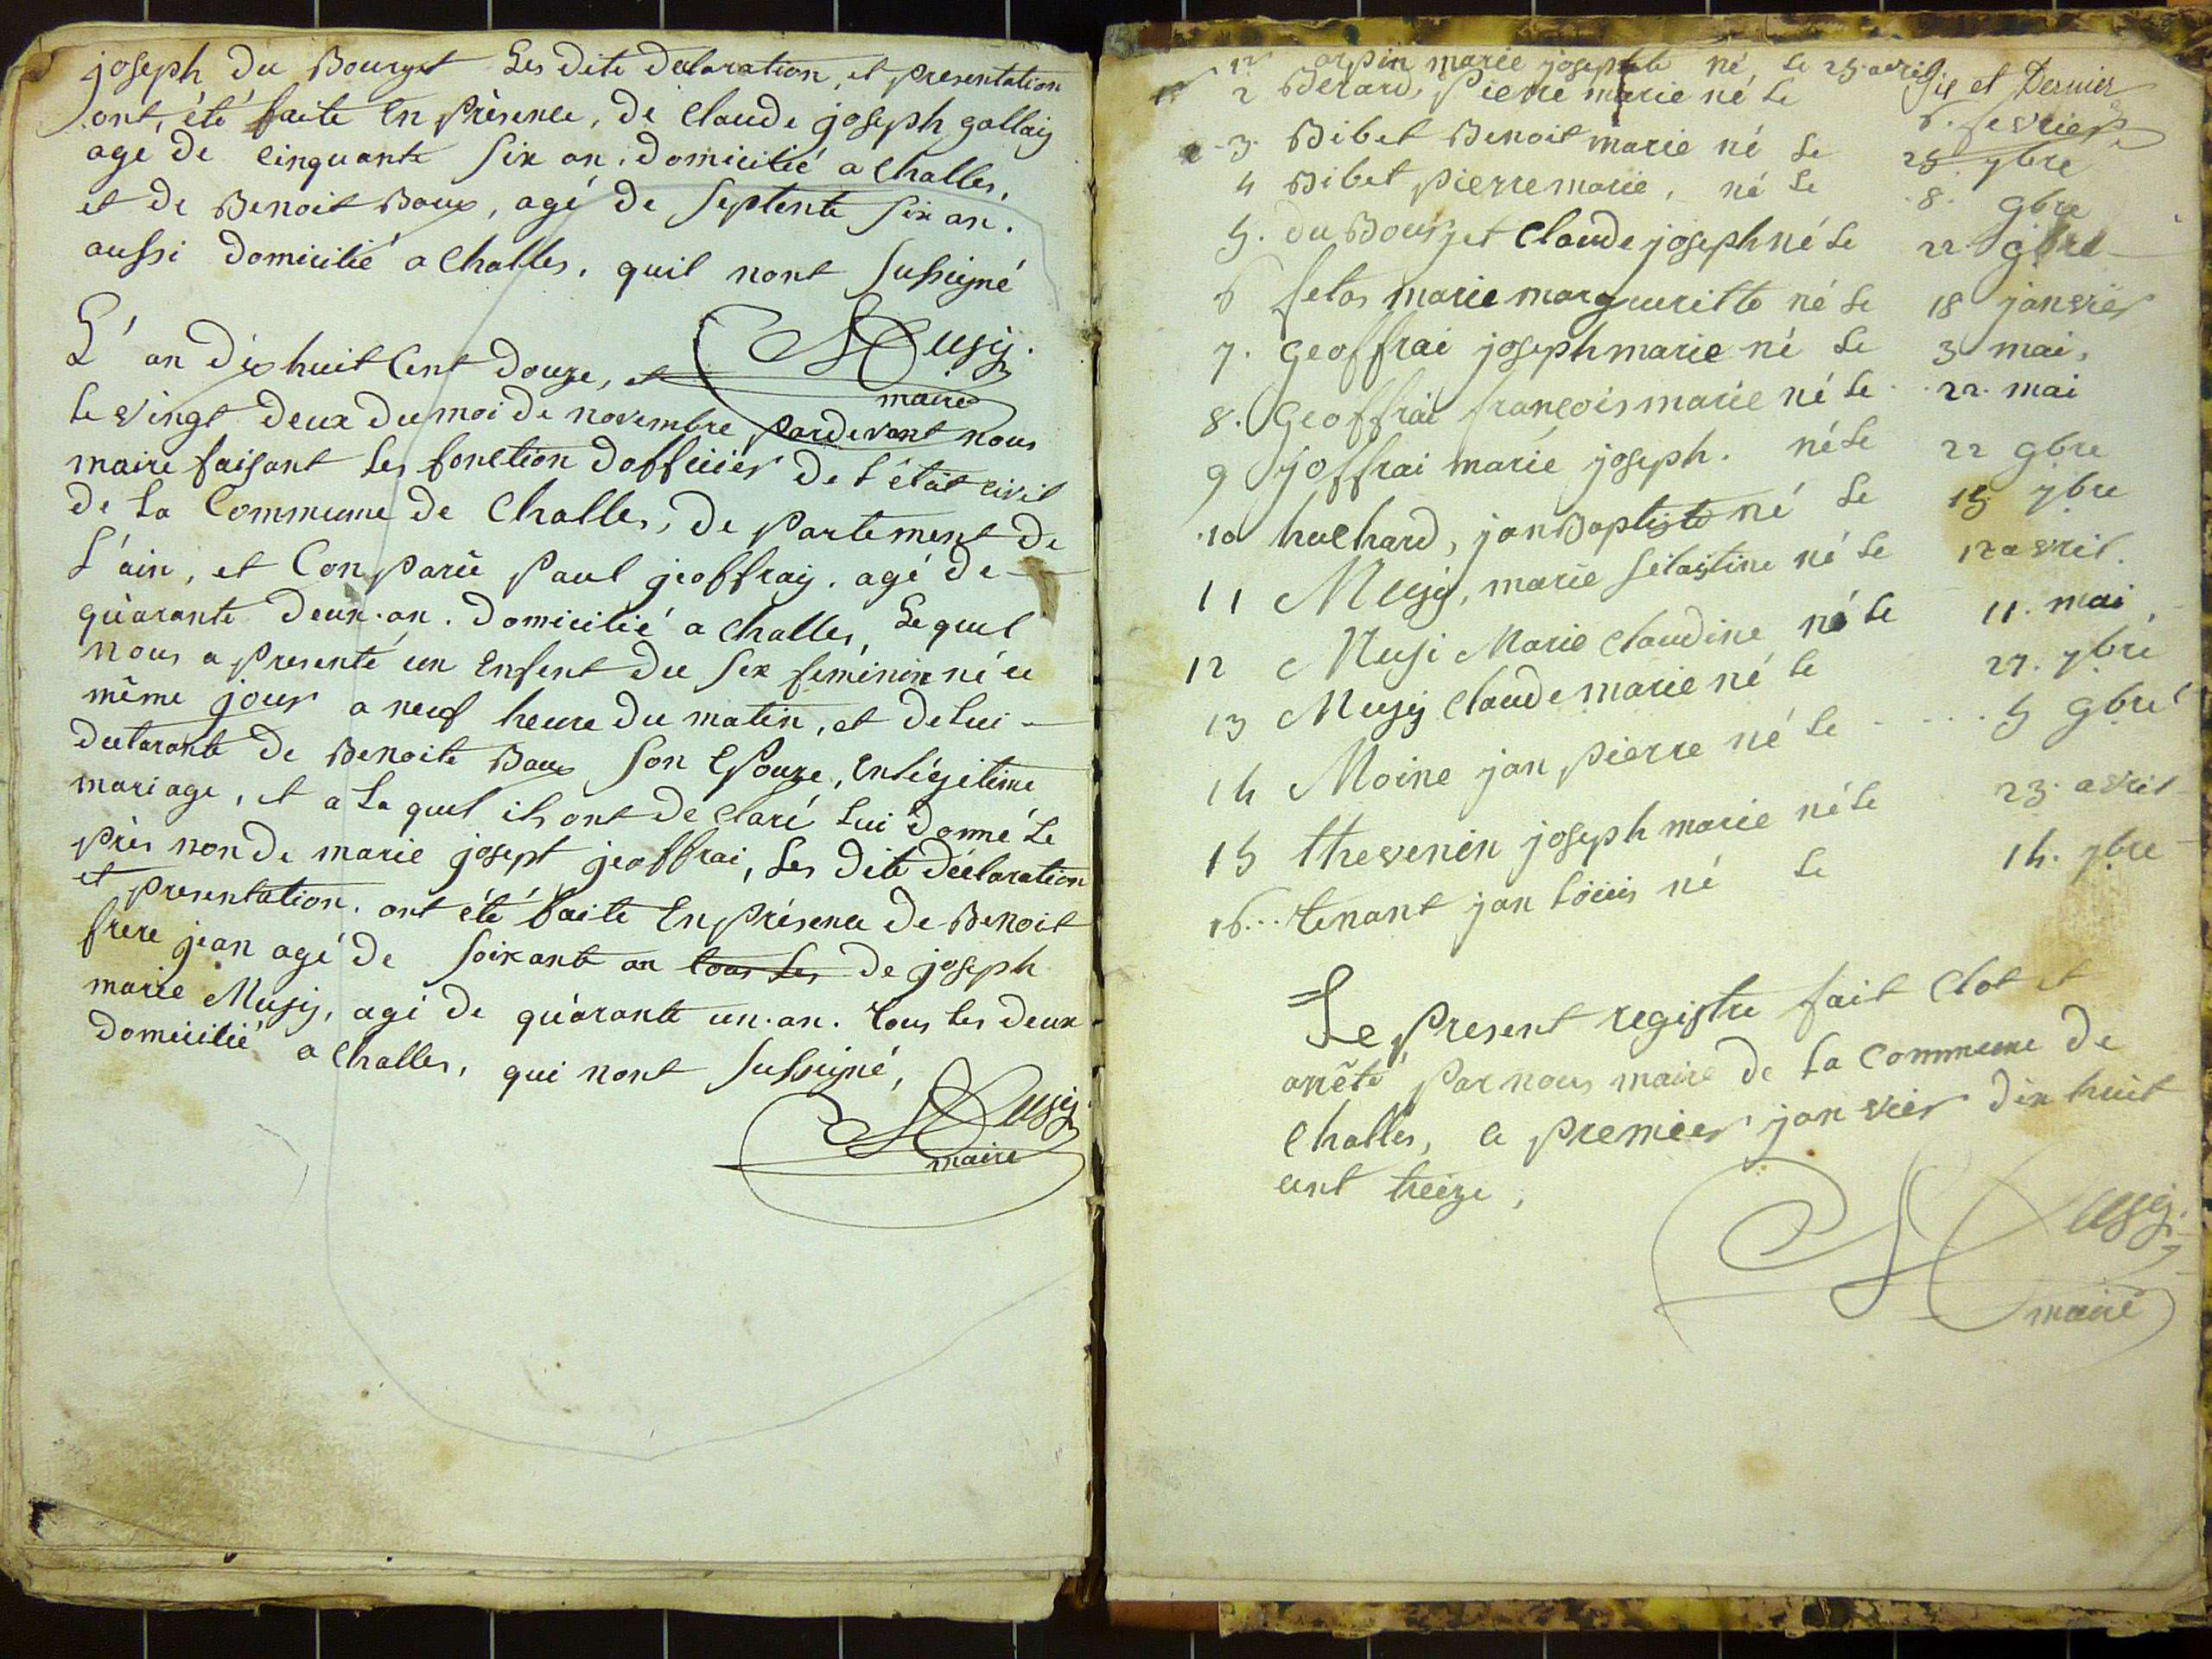 joseph du Bourget Les dite declaration, et presentation
ont, été faite En Présence, de Claude joseph gallay
age de cinquante six an, domicilié a Challes,
et de Benoit Baux, agé de septente six an.
aussi domicilié a Challes, quil nont sussigné
Musy
maire
L'an dix huit Cent douze, et
le vingt deux du moi de novembre pardevant nous
maire faisant les fonction dofficier de l'état civil
de la Commune de Challes, de partement de
L'ain, et Con parû Paul geoffray, agé de
quarante deux an. domicilié a Challes, Lequel
nous a presenté un Enfent du sex feminin né ce
même jour a neuf heure du matin, et de lui
declarante de Benoite Baux son Epouze, En légitime
mariage, et a la quel ils ont de claré lui donné le
près non de marie josept geoffrai, Les dite déclaration
et presentation. ont été faite En présence de Benoit
frere jean agé de soixante an tous les de joseph
marie Musy, agé de quarante un an. tous les deux
domicilié a Challes, qui nont sussigné,
Musy
maire
1r arpin marie josephte né le 25 avril
Six et Dernier
2 Berard, Pierre marie né le 6. fevrier
3. Bibet Benoit marie né le 25 7bre
4 Bibet pierre marie, né le 8. 9bre
5. du Bourget Claude joseph né le 22 9bre
6 fetas marie margueritte né le 18 janvier
7. geoffrai joseph marie né le 3 mai,
8. geoffrai françois marie né le 22. mai
9 joffrai marie joseph. né le 22 9bre
10 huchard, jan Baptiste né le 15 7bre
11 Musy, marie selastine né le 12 avril.
12 Musi Marie Claudine né le 11. mai
13 Musy Claude marie né le 27. 7bre
14 Moine jan pierre né le 5 9bre
15 thevenin joseph marie né le 23. avril
16.. tenant jan loiuis né le 14. 7bre
Le present registre fait Clot et
arrêté par nous maire de la Commune de
Challes, le premier janvier dix huit
cent treize,
Musy
maire